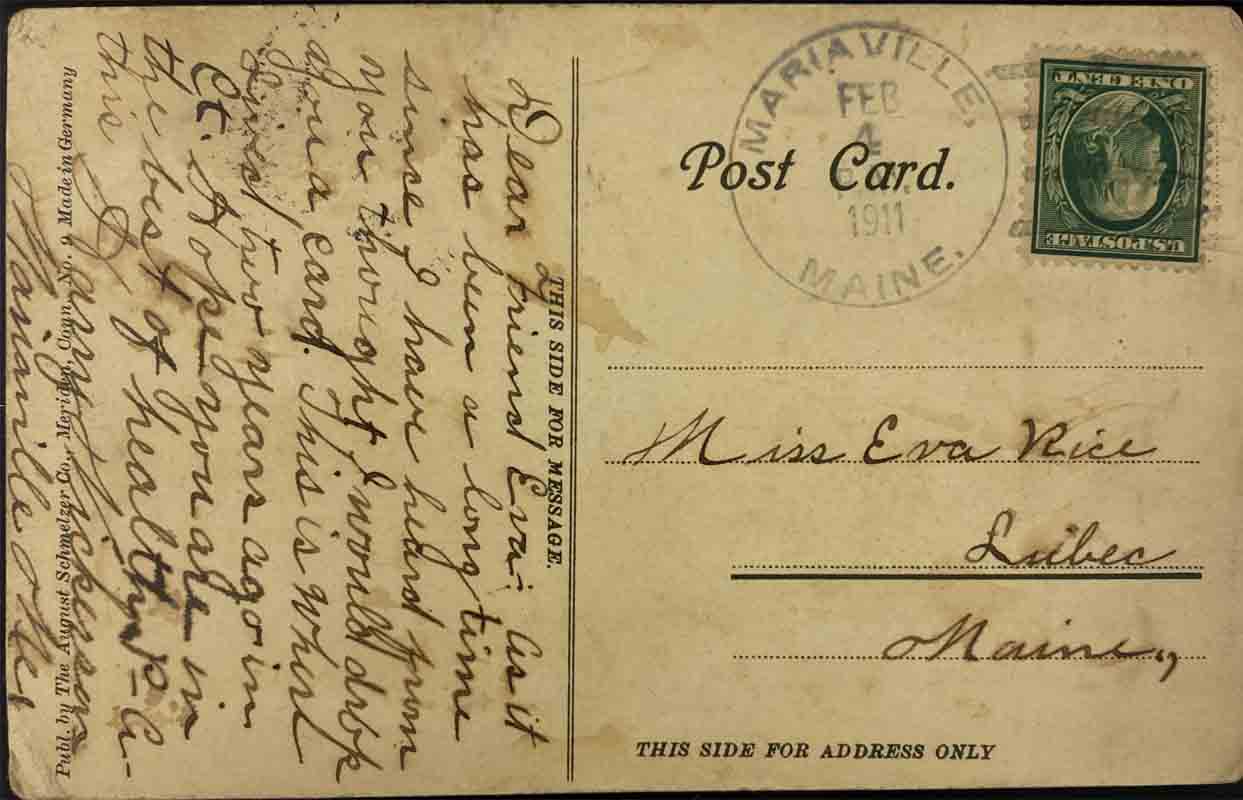 Dear friend Eva: As it
has been a long time
since I have heard from
you thought I would drop
you a card. This is where
I lived two years ago in
Ct. Hope you are in
the best of health, A-
this
Nickerson
Mariaville Me,
Publ. by The August Schmelzer Co., Meriden, Conn., No. 9 Made in Germany
THIS SIDE FOR MESSAGE.
MARIAVILLE,
FEB
4
1911
MAINE.
ONE CENT
U.S. POSTAGE
Post Card.
Miss Eva Rice
Lubec
Maine,
THIS SIDE FOR ADDRESS ONLY